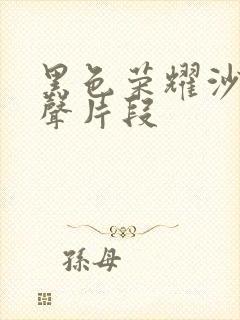 黑色荣耀沙
聲片段
孫母